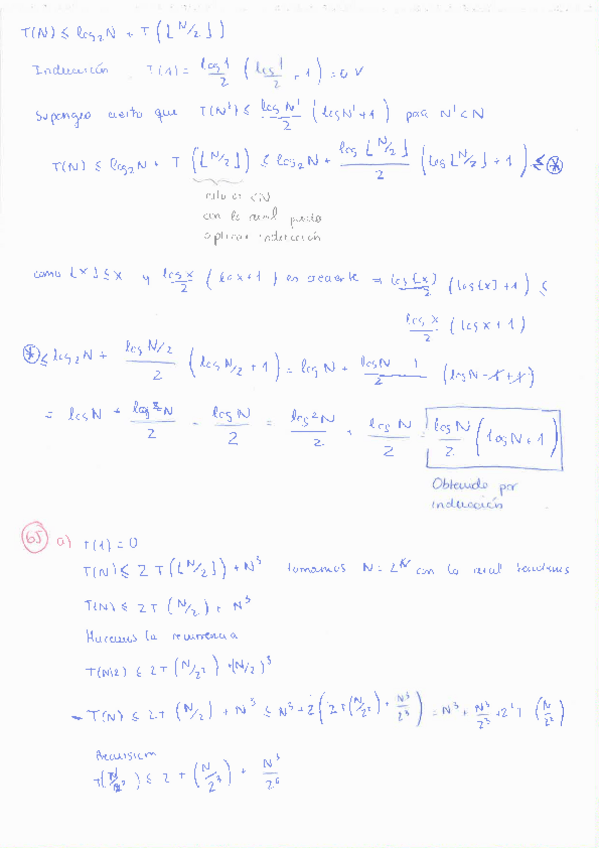 T(N) ≤ log₂N + T(⌊N/2⌋)
Inducción T(1) = log1/2 (log1/2 + 1) = 0 V
Supongo cierto que T(N') ≤ logN'/2 (logN'+1) para N' < N
T(N) ≤ log₂N + T(⌊N/2⌋) ≤ log₂N + log⌊N/2⌋/2 (log⌊N/2⌋+1) ≤ *
esto es <N
con lo cual puedo
aplicar inducción
como ⌊x⌋ ≤ x y logx/2 (logx+1) es creciente ⇒ log⌊x⌋/2 (log⌊x⌋+1) ≤
logx/2 (logx+1)
* ≤ log₂N + logN/2/2 (logN/2 + 1) = logN + logN - 1/2 (logN - 1 + 1)
= logN + log²N/2 - logN/2 = log²N/2 + logN/2 = logN/2 (logN+1)
Obtenido por
inducción
65 a) T(1) = 0
T(N) ≤ 2T(⌊N/2⌋) + N³ tomamos N = 2^K con lo cual tenemos
T(N) ≤ 2T(N/2) + N³
Hacemos la recurrencia
T(N/2) ≤ 2T(N/2²) + (N/2)³
- T(N) ≤ 2T(N/2) + N³ ≤ N³ + 2(2T(N/2²) + N³/2³) = N³ + N³/2² + 2²T(N/2²)
Recursión
T(N/2²) ≤ 2T(N/2³) + N³/2⁶